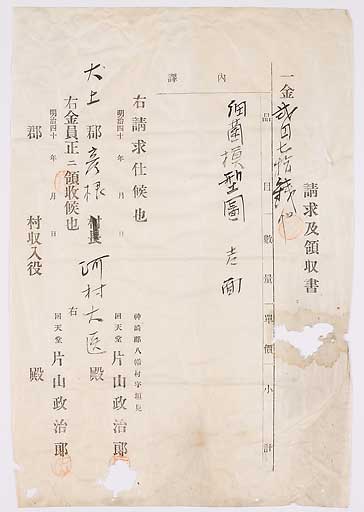 請求及領収書
一金弐円七拾銭也
品目 数量 單價 小計
內譯
細菌模型圖 壱面
右請求仕候也
明治四十 年 月 日
神崎郡八幡村字垣見
回天堂 片山政治郎
犬上郡彦根 河村大医 殿
右金員正ニ領收候也
明治四十 年 月 日
右
回天堂 片山政治郎
郡 村収入役 殿